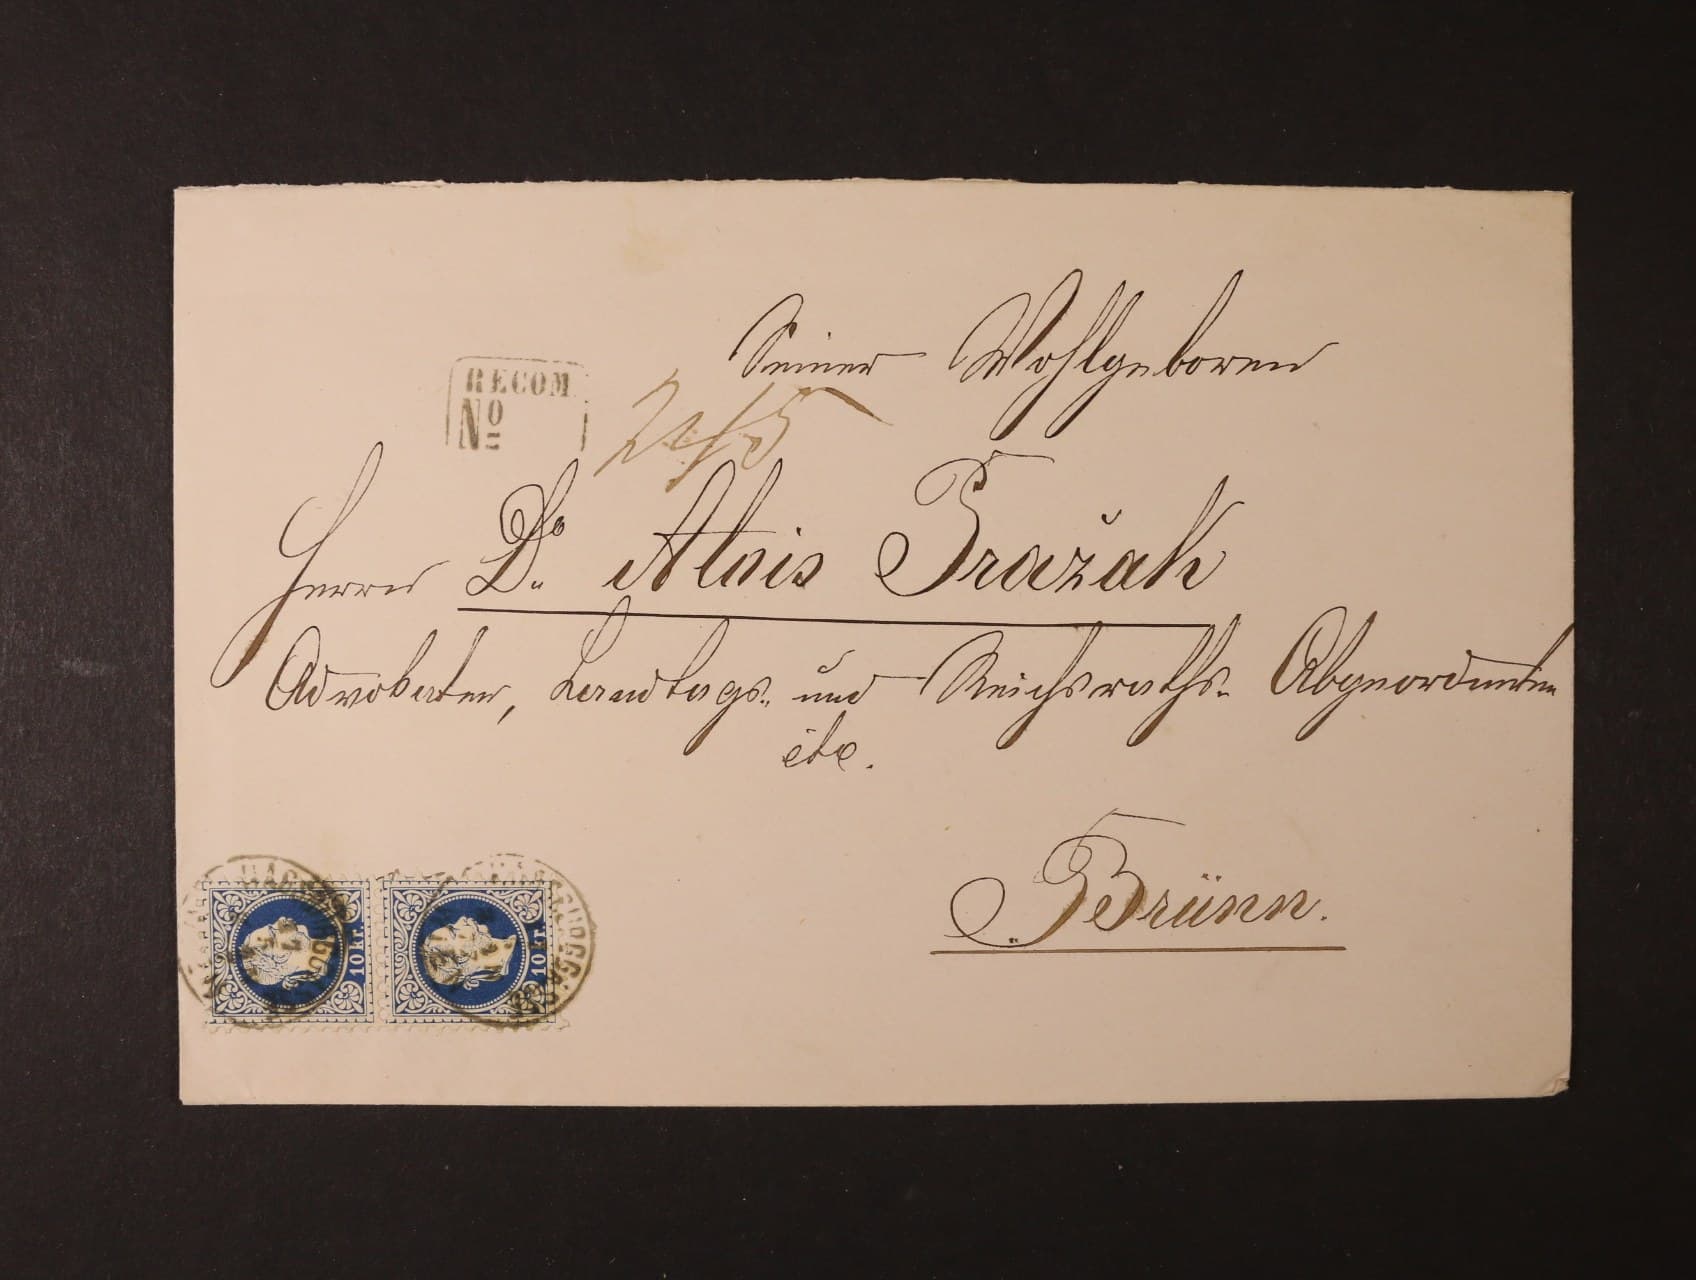 Seiner Wohlgeboren
RECOM
No
Herrn Dr. Alois Pražak
Advokaten, Landtags- und Reichsraths- Abgeordneten
etc.
Brünn.
10 kr. 10 kr.